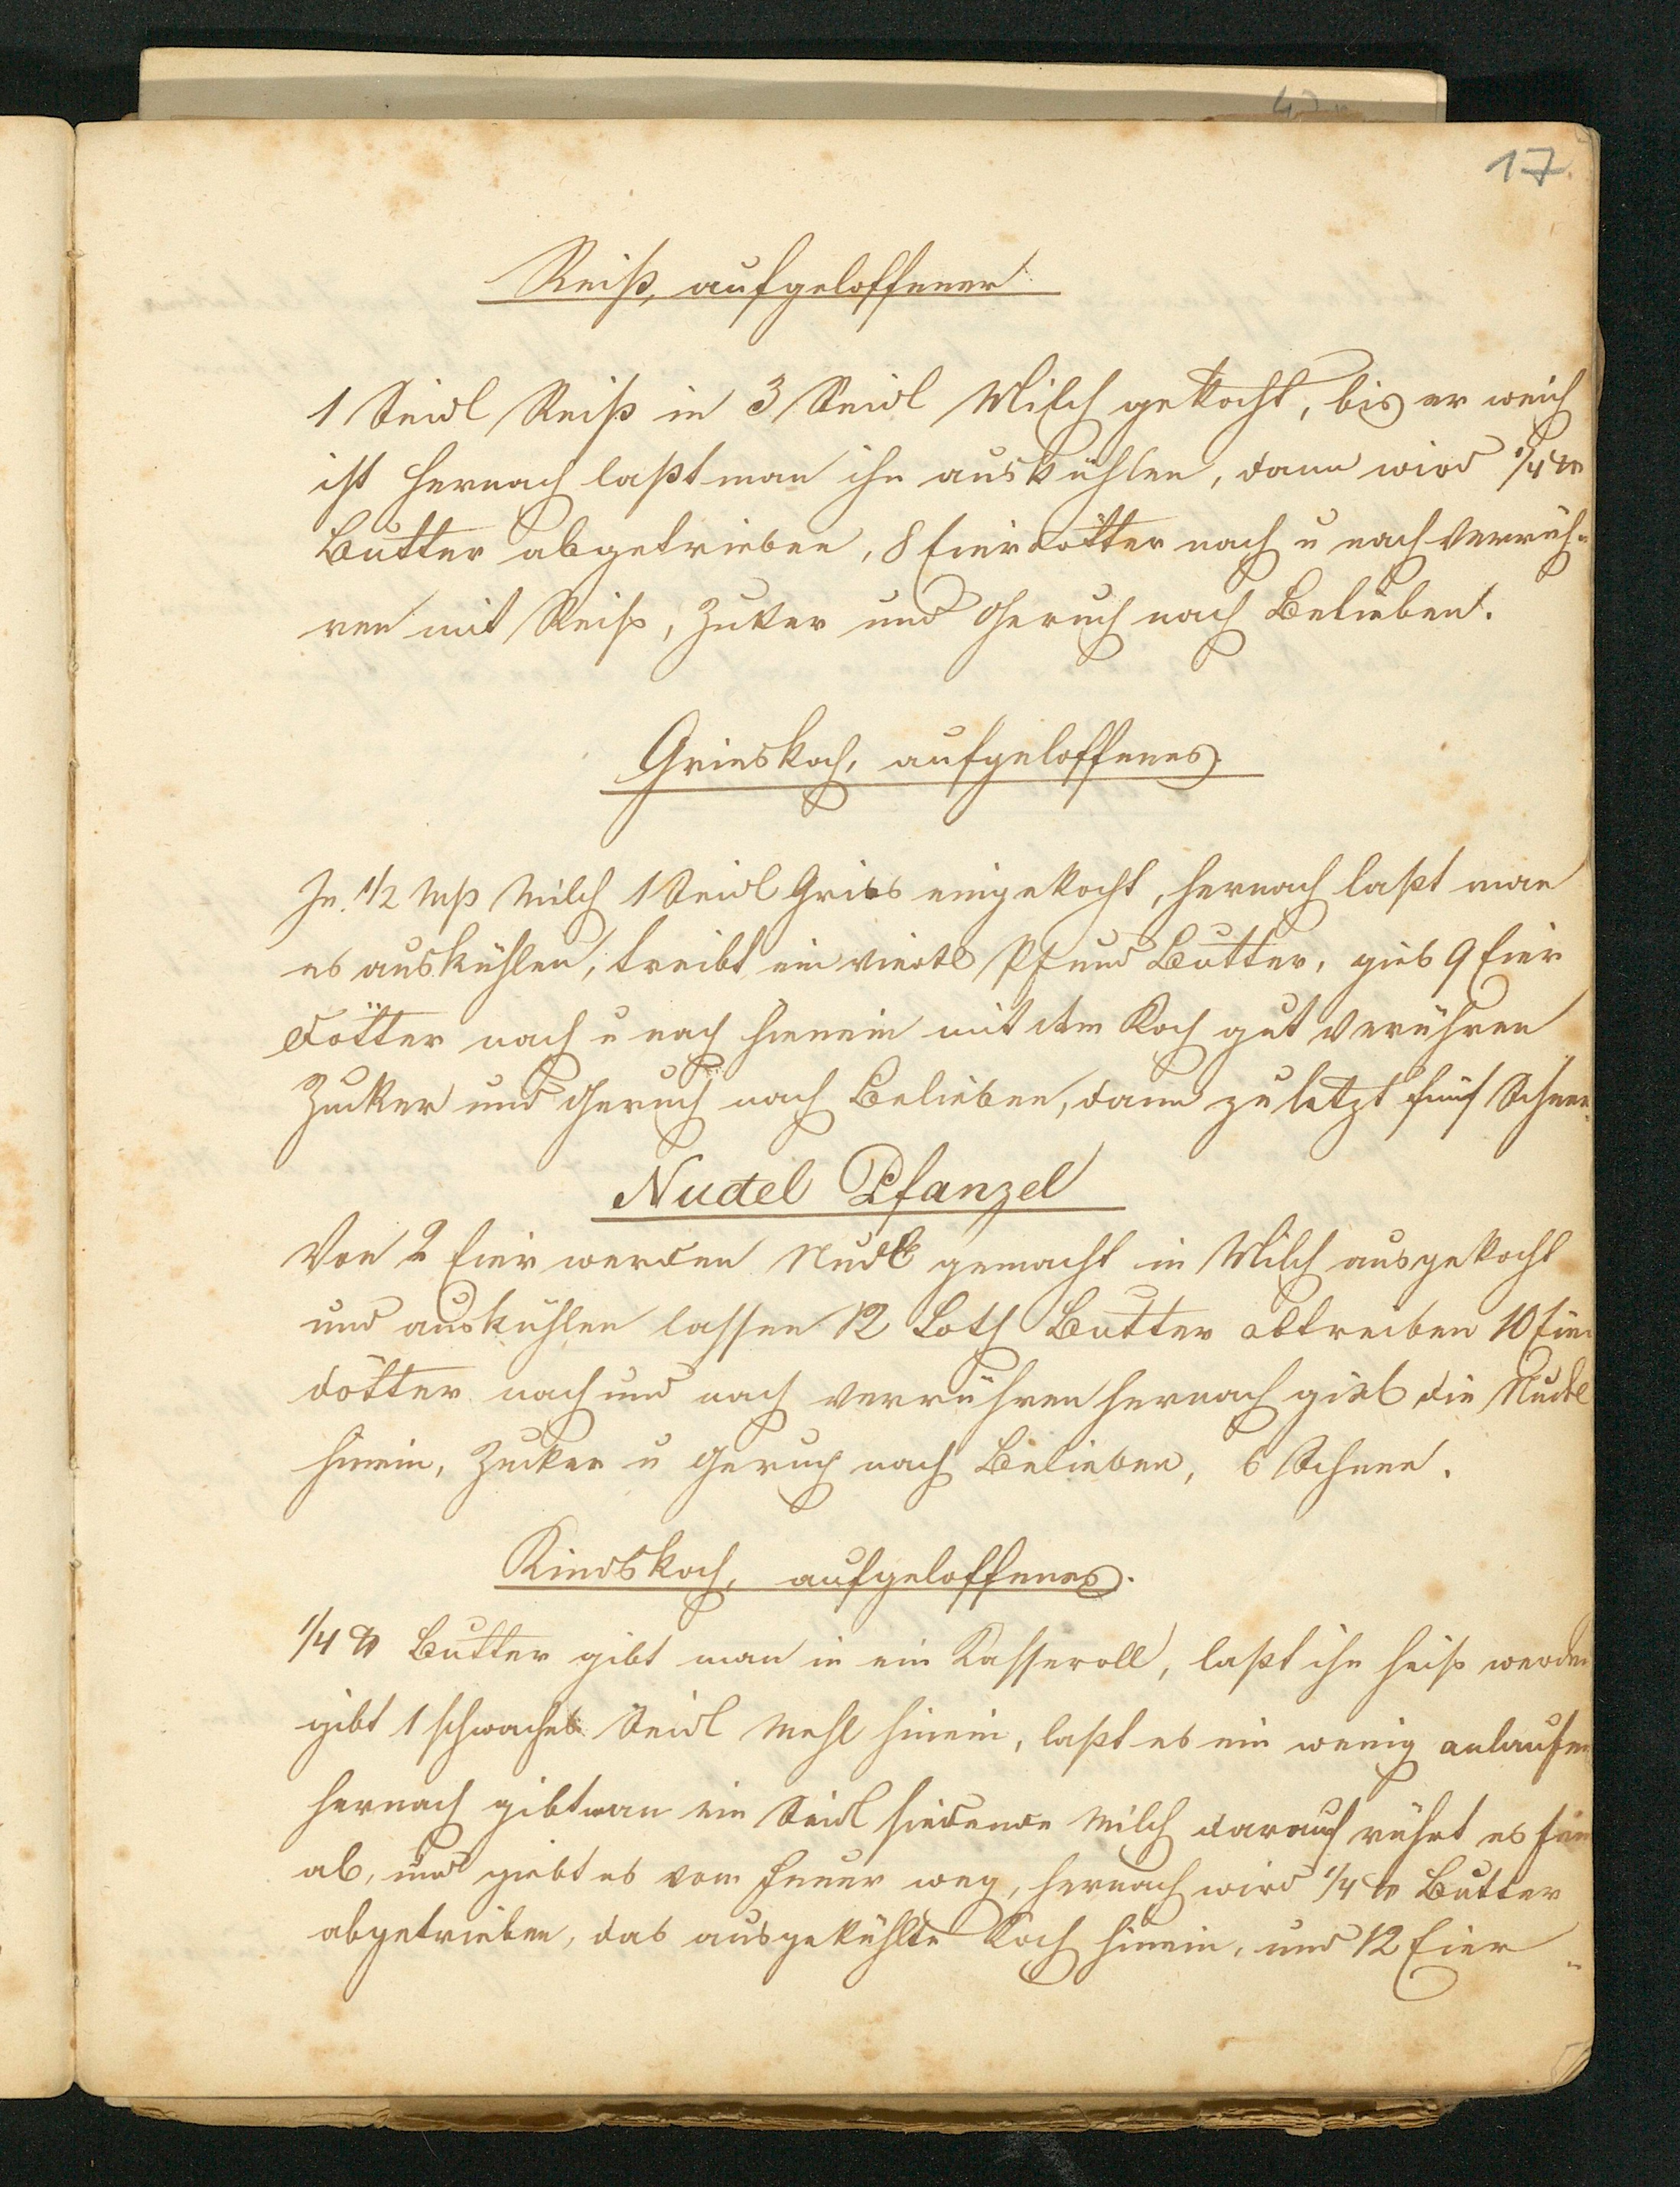 17.
Reiß, aufgeloffener
1 Seidl Reiß in 3 Seidl Milch gekocht, bis er weich
ist hernach laßt man ihn auskühlen, dann wird 1/4 ℔
Butter abgetrieben, 8 Eierdötter nach u nach verrüh-
ren mit Reiß, Zuker und Geruch nach Belieben.
Grieskoch, aufgeloffenes.
In 1/2 Mß Milch 1 Seidl Gries eingekocht, hernach laßt man
es auskühlen, treibt ein viertl Pfund Butter, gieb 9 Eier
dötter nach u nach hienein mit dem Koch gut verühren
Zucker und Geruch nach Belieben, dann zuletzt fünf Schnee.
Nudel Pfanzel
Von 2 Eier werden Nudl gemacht in Milch ausgekocht
und auskühlen lassen 12 Loth Butter abtreiben 10 Eier
dötter nach und nach verrühren hernach gieb die Nudl
hinein, Zucker u Geruch nach Belieben, 6 Schnee.
Kindskoch, aufgeloffenes.
1/4 ℔ Butter gibt man in ein Kasseroll, laßt ihn heiß werden
gibt 1 schwaches Seidl Mehl hinein, laßt es ein wenig anlaufen
hernach gibt man ein Seidl siedende Milch darauf rührt es fein
ab, und giebt es vom Feuer weg, hernach wird 1/4 ℔ Butter
abgetrieben, das ausgekühlte Koch hinein, und 12 Eier-